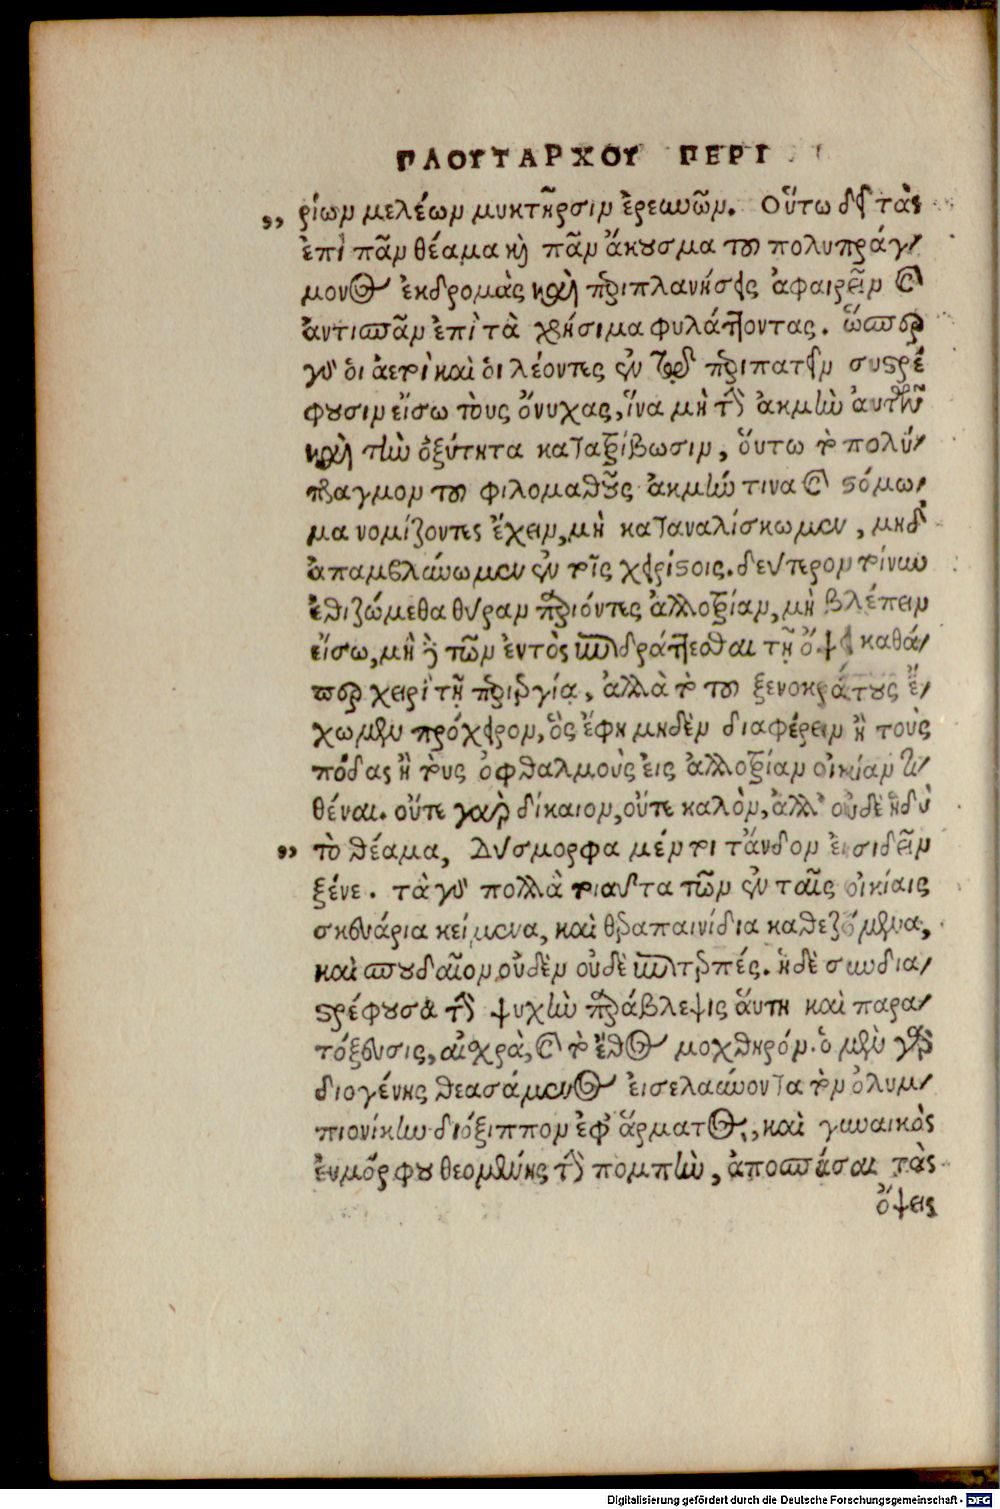 ΠΛΟΥΤΑΡΧΟΥ ΠΕΡΙ
,, ρίων μελέων μυκτῆρσιν ἐρευνῶν. Οὕτω δεῖ τὰς
ἐπὶ πᾶν θέαμα καὶ πᾶν ἄκουσμα τοῦ πολυπράγ-
μονος ἐκδρομὰς καὶ περιπλανήσεις ἀφαιρεῖν καὶ
ἀντισπᾶν ἐπὶ τὰ χρήσιμα φυλάττοντας. ὥσπερ
γὰρ ὁι ἀετοὶ καὶ ὁι λέοντες ἐν τῷ περιπατεῖν συστρέ
φουσιν εἴσω τοὺς ὄνυχας, ἵνα μὴ τὴν ἀκμὴν ἀυτῶν
καὶ τὴν ὀξύτητα κατατρίβωσιν, ὅυτω τὸ πολύ-
πραγμον τοῦ φιλομαθοῦς ἀκμήν τινα καὶ στόμω-
μα νομίζοντες ἔχειν, μὴ καταναλίσκωμεν, μηδ'
ἀπαμβλύνωμεν ἐν τοῖς χείριστοις. δεύτερον τοίνυν
ἐθιζώμεθα θύραν παριόντες ἀλλοτρίαν, μὴ βλέπειν
εἴσω, μὴ δὲ τῶν ἐντὸς ἐπιδράττεσθαι τῇ ὄψει καθά-
περ χειρὶ τῇ περιεργίᾳ, ἀλλὰ τὸ τοῦ ξενοκράτους ἔ-
χωμεν πρόχειρον, ὃς ἔφη μηδὲν διαφέρειν ἢ τοὺς
πόδας ἢ τοὺς ὀφθαλμοὺς εἰς ἀλλοτρίαν οἰκίαν τι-
θέναι. οὔτε γὰρ δίκαιον, οὔτε καλὸν, ἀλλ' οὐδὲ ἡδὺ
,, τὸ θέαμα, Δύσμορφα μέν τοι τἄνδον εἰσιδεῖν
ξένε. τὰ γὰρ πολλὰ τοιαῦτα τῶν ἐν ταῖς οἰκίαις
σκευάρια κείμενα, καὶ θεραπαινίδια καθεζόμενα,
καὶ σπουδαῖον οὐδὲν οὐδὲ ἐπιτερπές. ἡ δὲ συνδια-
στρέφουσα τὴν ψυχὴν παράβλεψις ἅυτη καὶ παρα-
τόξευσις, αἰσχρὰ, καὶ τὸ ἔθος μοχθηρόν. ὁ μὲν γὰρ
διογένης θεασάμενος εἰσελαύνοντα τὸν ὀλυμ-
πιονίκην διόξιππον ἐφ' ἅρματος, καὶ γυναικὸς
ἐυμόρφου θεομένης τὴν πομπὴν, ἀποσπάσαι τὰς
ὄψεις
Digitalisierung gefördert durch die Deutsche Forschungsgemeinschaft - DFG